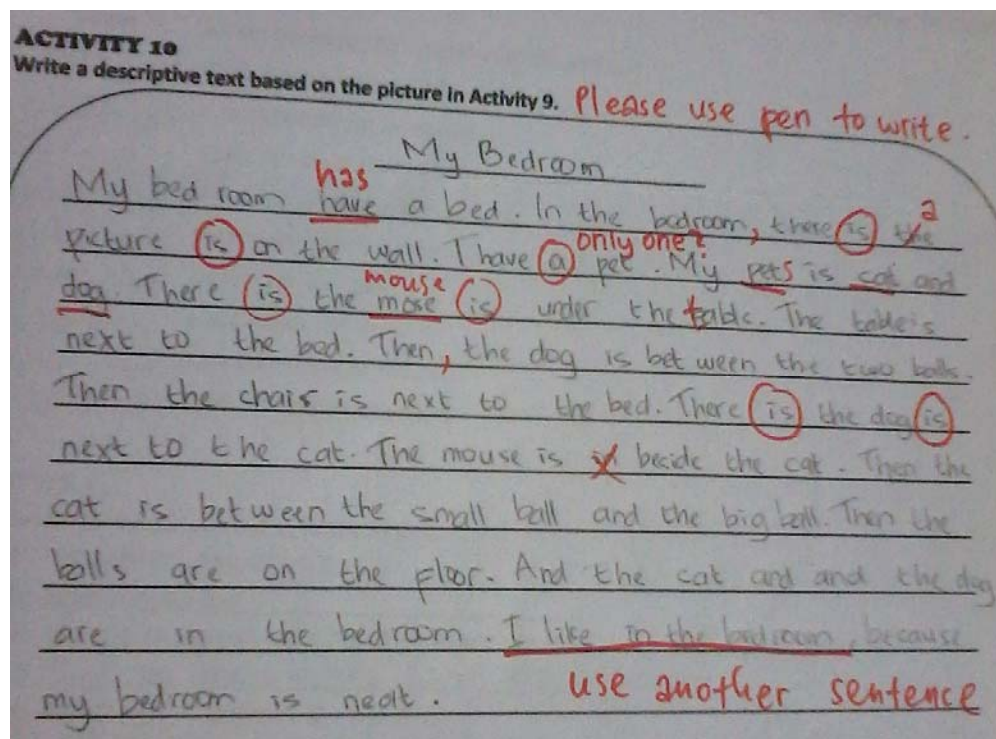 ACTIVITY 10
Write a descriptive text based on the picture in Activity 9. Please use pen to write.
My Bedroom
has
My bed room have a bed. In the bedroom, there is the a
picture is on the wall. I have a pet. My pets is cat and
only one?
mouse
dog. There is the mose is under the table. The table is
next to the bed. Then, the dog is bet ween the two balls.
Then the chair is next to the bed. There is the dog is
next to the cat. The mouse is beside the cat. Then the
cat is between the small ball and the big ball. Then the
balls are on the floor. And the cat and and the dog
are in the bedroom. I like in the bedroom, because
my bedroom is neat.
use another sentence